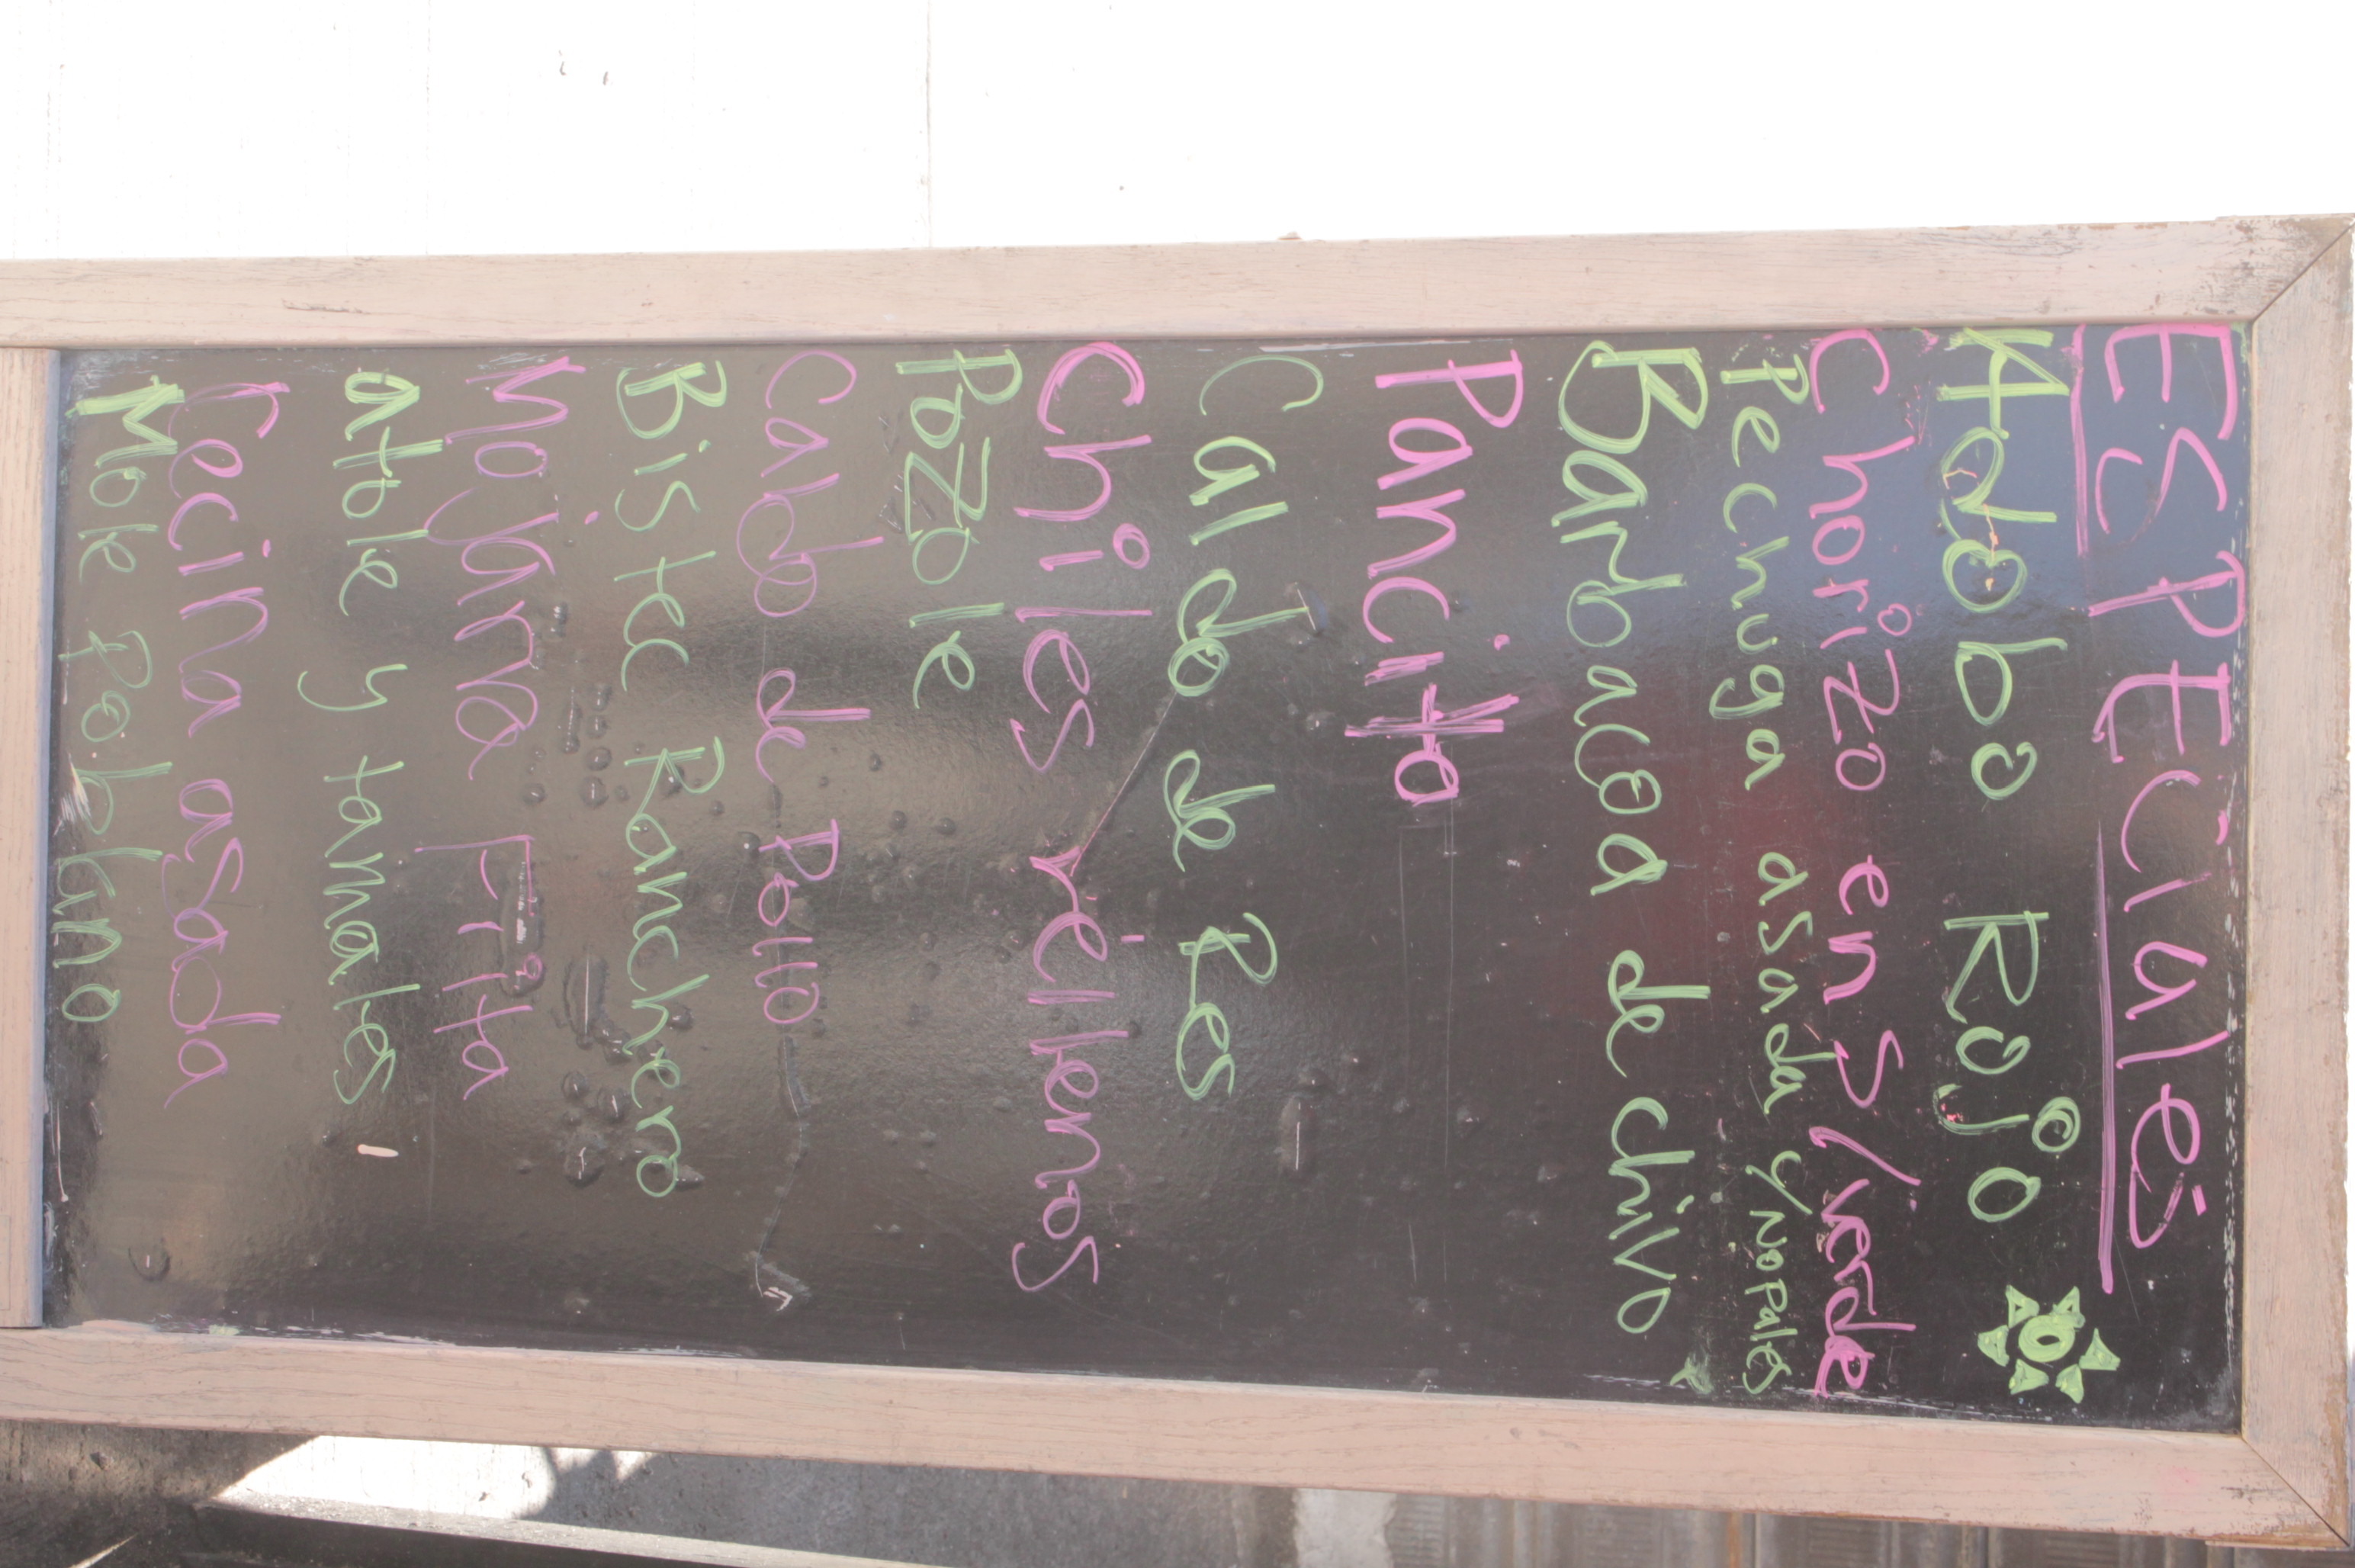 ESPECiales
Adobo Rojo
Chorizo en S/verde
Pechuga asada y/Nopales
Barbacoa de chivo
Pancita
Caldo de Res
Chiles rellenos
Pozole
Caldo de Pollo
Bistec Ranchero
Mojarra Frita
atole y tamales
Cecina asada
Mole Poblano